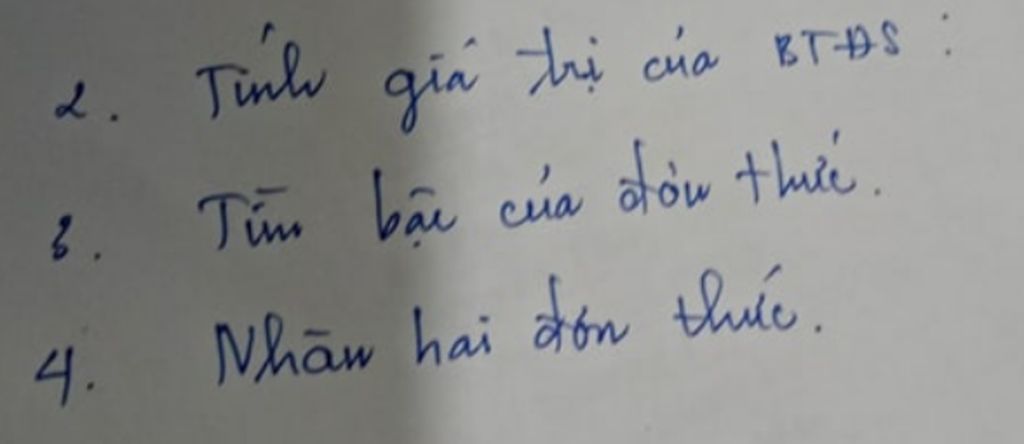 2. Tính giá trị của BTĐS :
3. Tìm bậc của đơn thức.
4. Nhân hai đơn thức.